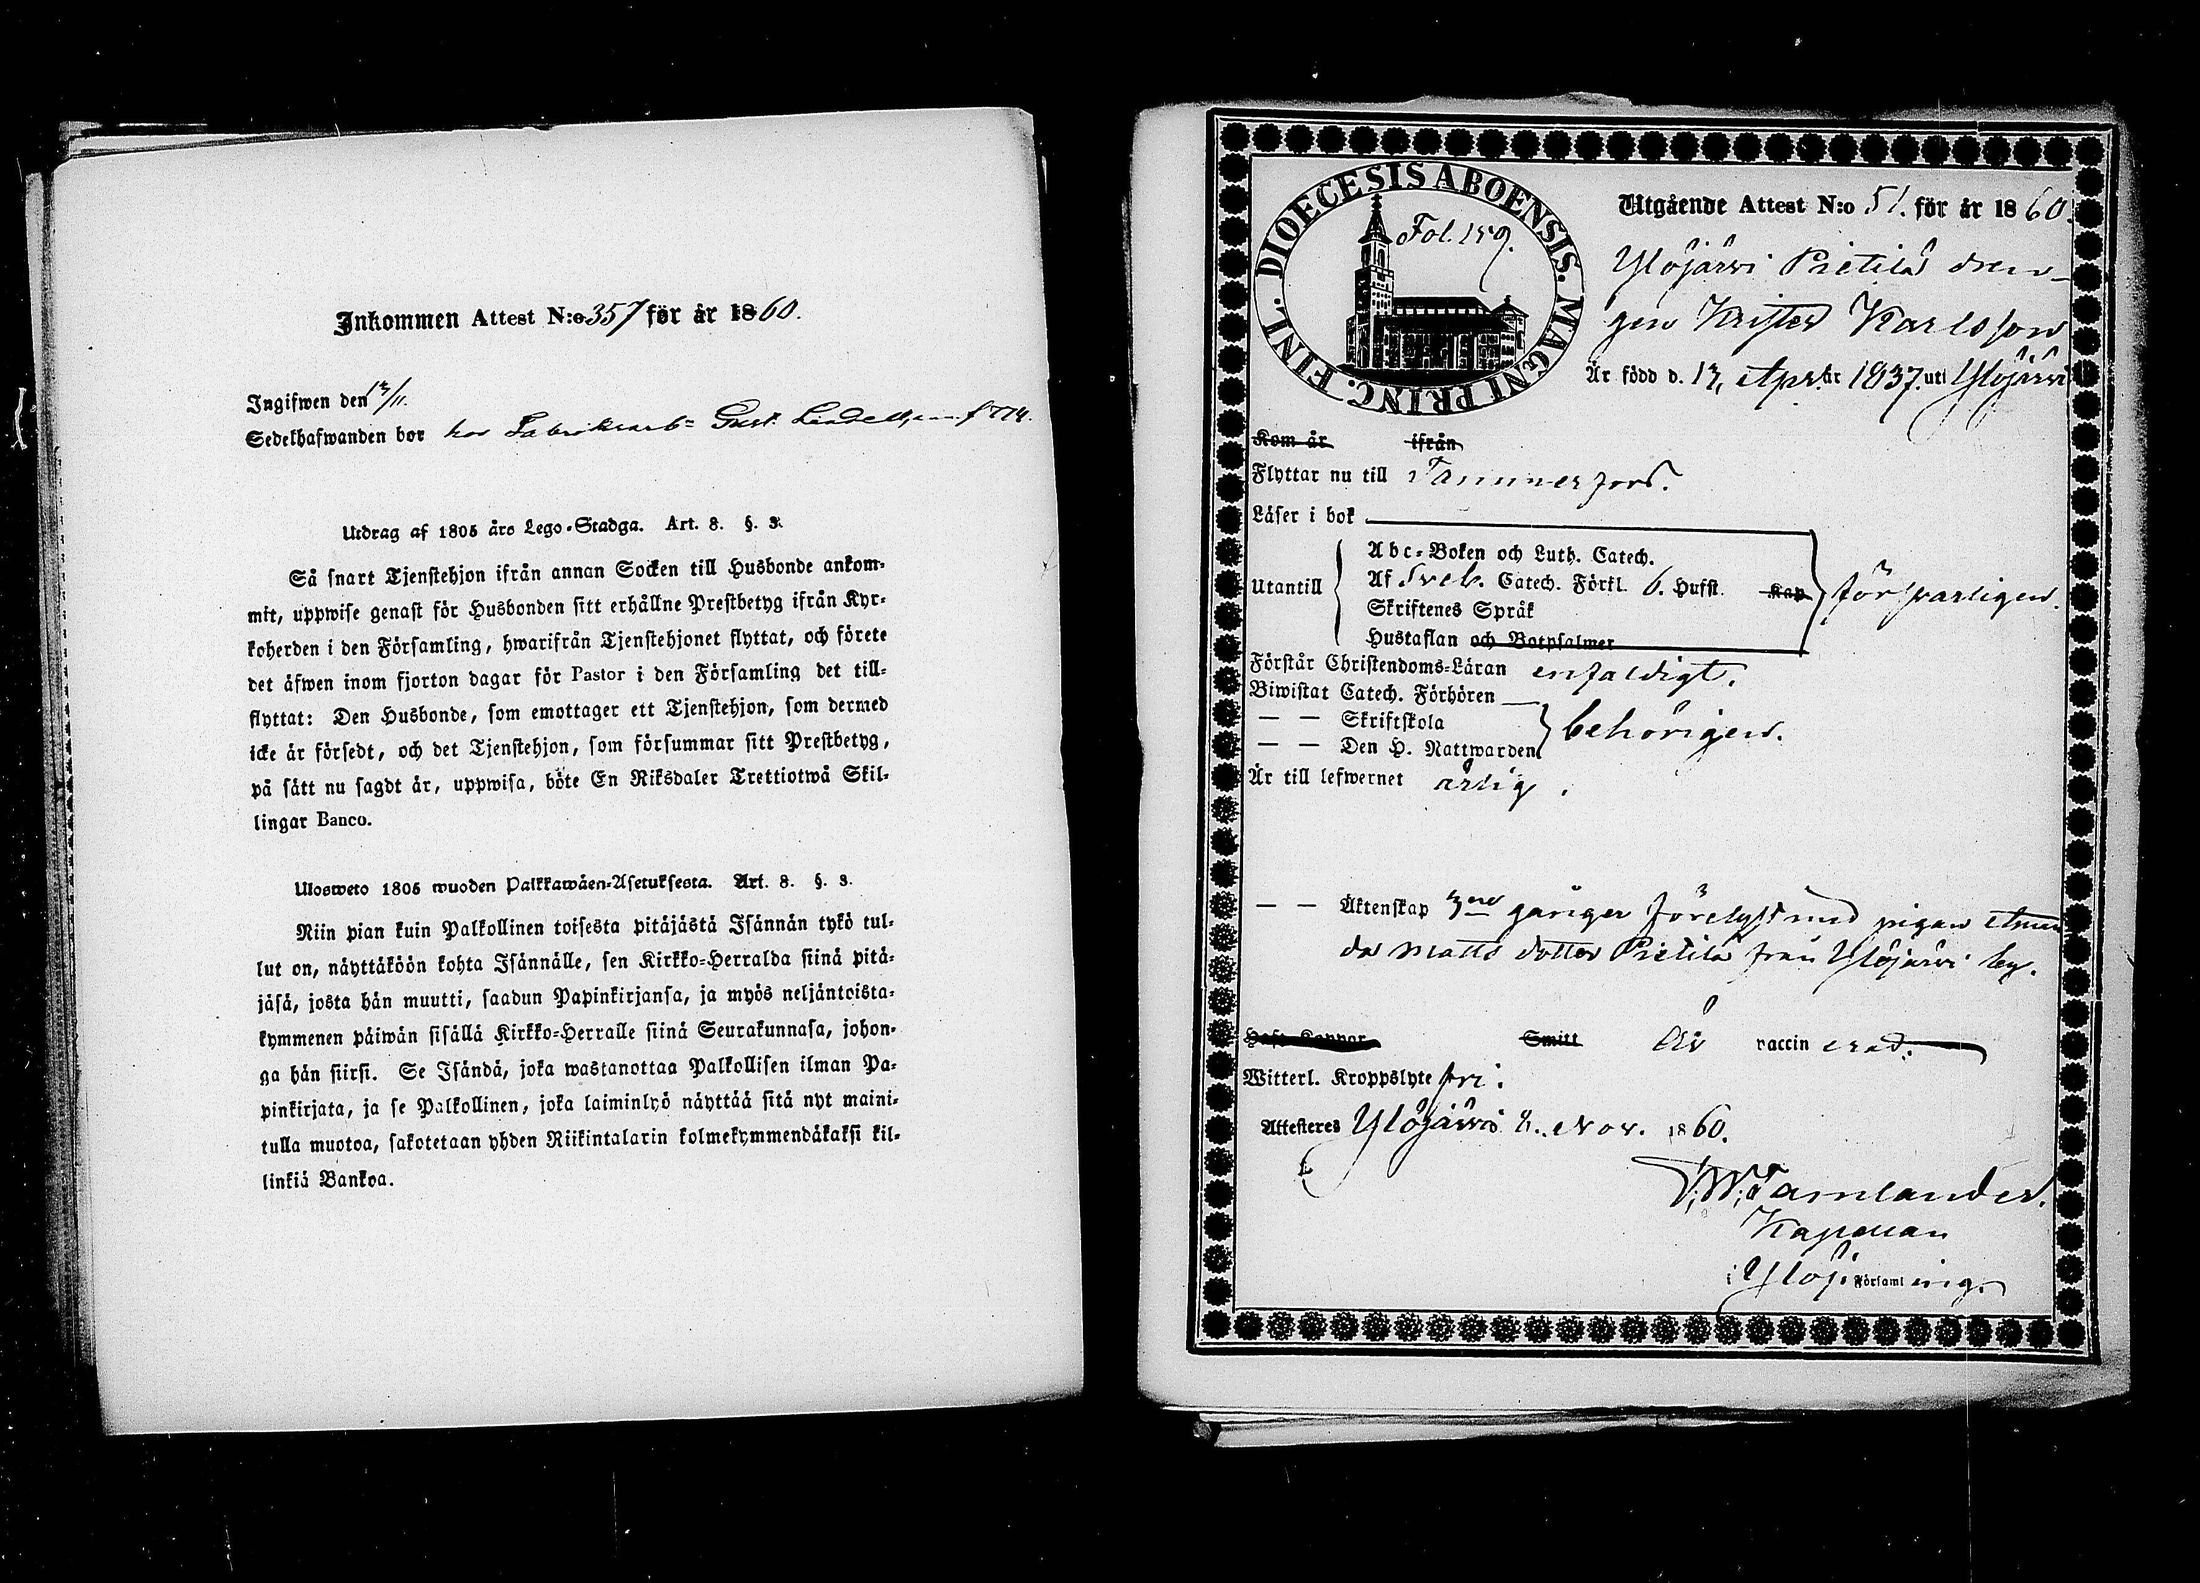 Inkommen Attest N:o 357 för år 1860.
Ingifwen den 13/11.
Sedelhafwanden bor hos Fabriksarb= Gust. Lindell,
Utdrag af 1805 års Lego-Stadga. Art. 8. §. 3.
Så snart Tjenstehjon ifrån annan Socken till Husbonde ankom-
mit, uppwise genast för Husbonden sitt erhållne Prestbetyg ifrån Kyr-
koherden i den Församling, hwarifrån Tjenstehjonet flyttat, och förete
det äfwen inom fjorton dagar för Pastor i den Församling det till-
flyttat: Den Husbonde, som emottager ett Tjenstehjon, som dermed
icke är försedt, och det Tjenstehjon, som försummar sitt Prestbetyg,
på sätt nu sagdt är, uppwisa, böte En Riksdaler Trettiotwå Skil-
lingar Banco.
Ulosweto 1805 wuoden Palkkawäen-Asetuksesta. Art. 8. §. 3.
Niin pian kuin Palkollinen toisesta pitäjästä Isännän tykö tul-
lut on, näyttäköön kohta Isännälle, sen Kirkko-Herralda siinä pitä-
jäsä, josta hän muutti, saadun Papinkirjansa, ja myös neljäntoista-
kymmenen päiwän sisällä Kirkko-Herralle siinä Seurakunnasa, johon-
ga hän siirsi. Se Isändä, joka wastanottaa Palkollisen ilman Pa-
pinkirjata, ja se Palkollinen, joka laiminlyö näyttää sitä nyt maini-
tulla muotoa, sakotetaan yhden Riikintalarin kolmekymmendäkaksi kil-
linkiä Bankoa.
DIOECESIS ABOENSIS. MAGNI PRINC. FINL.
Fol. 159.
Utgående Attest N:o 51. för år 1860.
Ylöjärvi Pietilä dren-
gen Krister Karlsson
Är född d. 13, Apr. år 1837. uti Ylöjärvi
Kom år ifrån
Flyttar nu till Tammerfors.
Läser i bok
Abc-Boken och Luth. Catech.
Utantill Af Sveb. Catech. Förkl. 6. Hufst. Kap försvarligen.
Skriftenes Språk
Hustaflan och Botpsalmer
Förstår Christendoms-Läran enfaldigt.
Biwistat Catech. Förhören
— — Skriftskola behörigen.
— — Den H. Nattwarden
Är till lefwernet ärlig.
— — Äktenskap 3ne gånger förelyst med pigan Aman-
da Matts dotter Pietilä från Ylöjärvi by.
Haft Koppor Smitt Är vaccinerad.
Witterl. Kroppslyte fri.
Attesteres Ylöjärvi 8. Nov. 1860.
Tamlander.
Kapellan
i Ylöj. Församling.